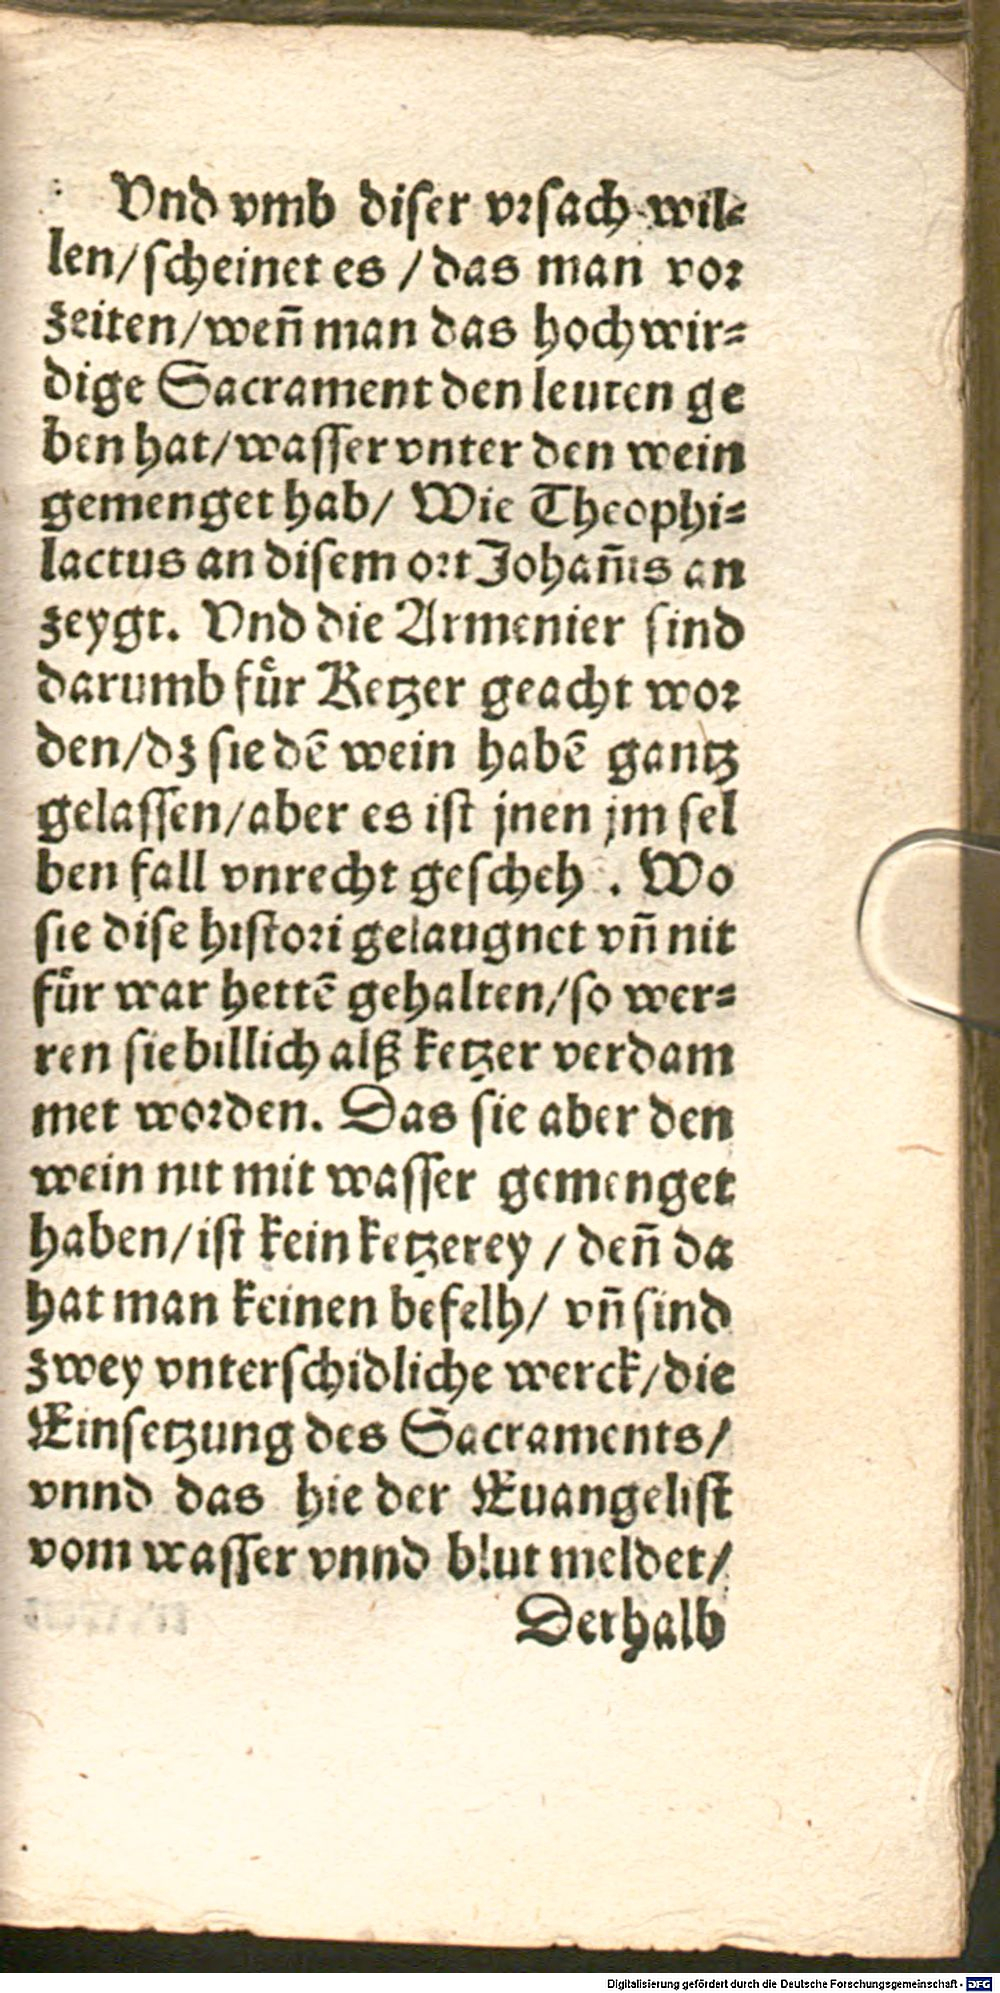 Vnd vmb diser vrsach wil-
len/scheinet es / das man vor
zeiten/weñ man das hochwir-
dige Sacrament den leuten ge
ben hat/wasser vnter den wein
gemenget hab/ Wie Theophi-
lactus an disem ort Johañis an
zeygt. Vnd die Armenier sind
darumb fuͤr Ketzer geacht wor
den/dz sie dē wein habē gantz
gelassen/aber es ist jnen jm sel
ben fall vnrecht gescheh . Wo
sie dise histori gelaugnet vñ nit
fuͤr war hettē gehalten/so wer-
ren sie billich alß ketzer verdam
met worden. Das sie aber den
wein nit mit wasser gemenget
haben/ist kein ketzerey / deñ da
hat man keinen befelh/ vñ sind
zwey vnterschidliche werck/die
Einsetzung des Sacraments/
vnnd das hie der Euangelist
vom wasser vnnd blut meldet/
Derhalb
Digitalisierung gefördert durch die Deutsche Forschungsgemeinschaft - DFG